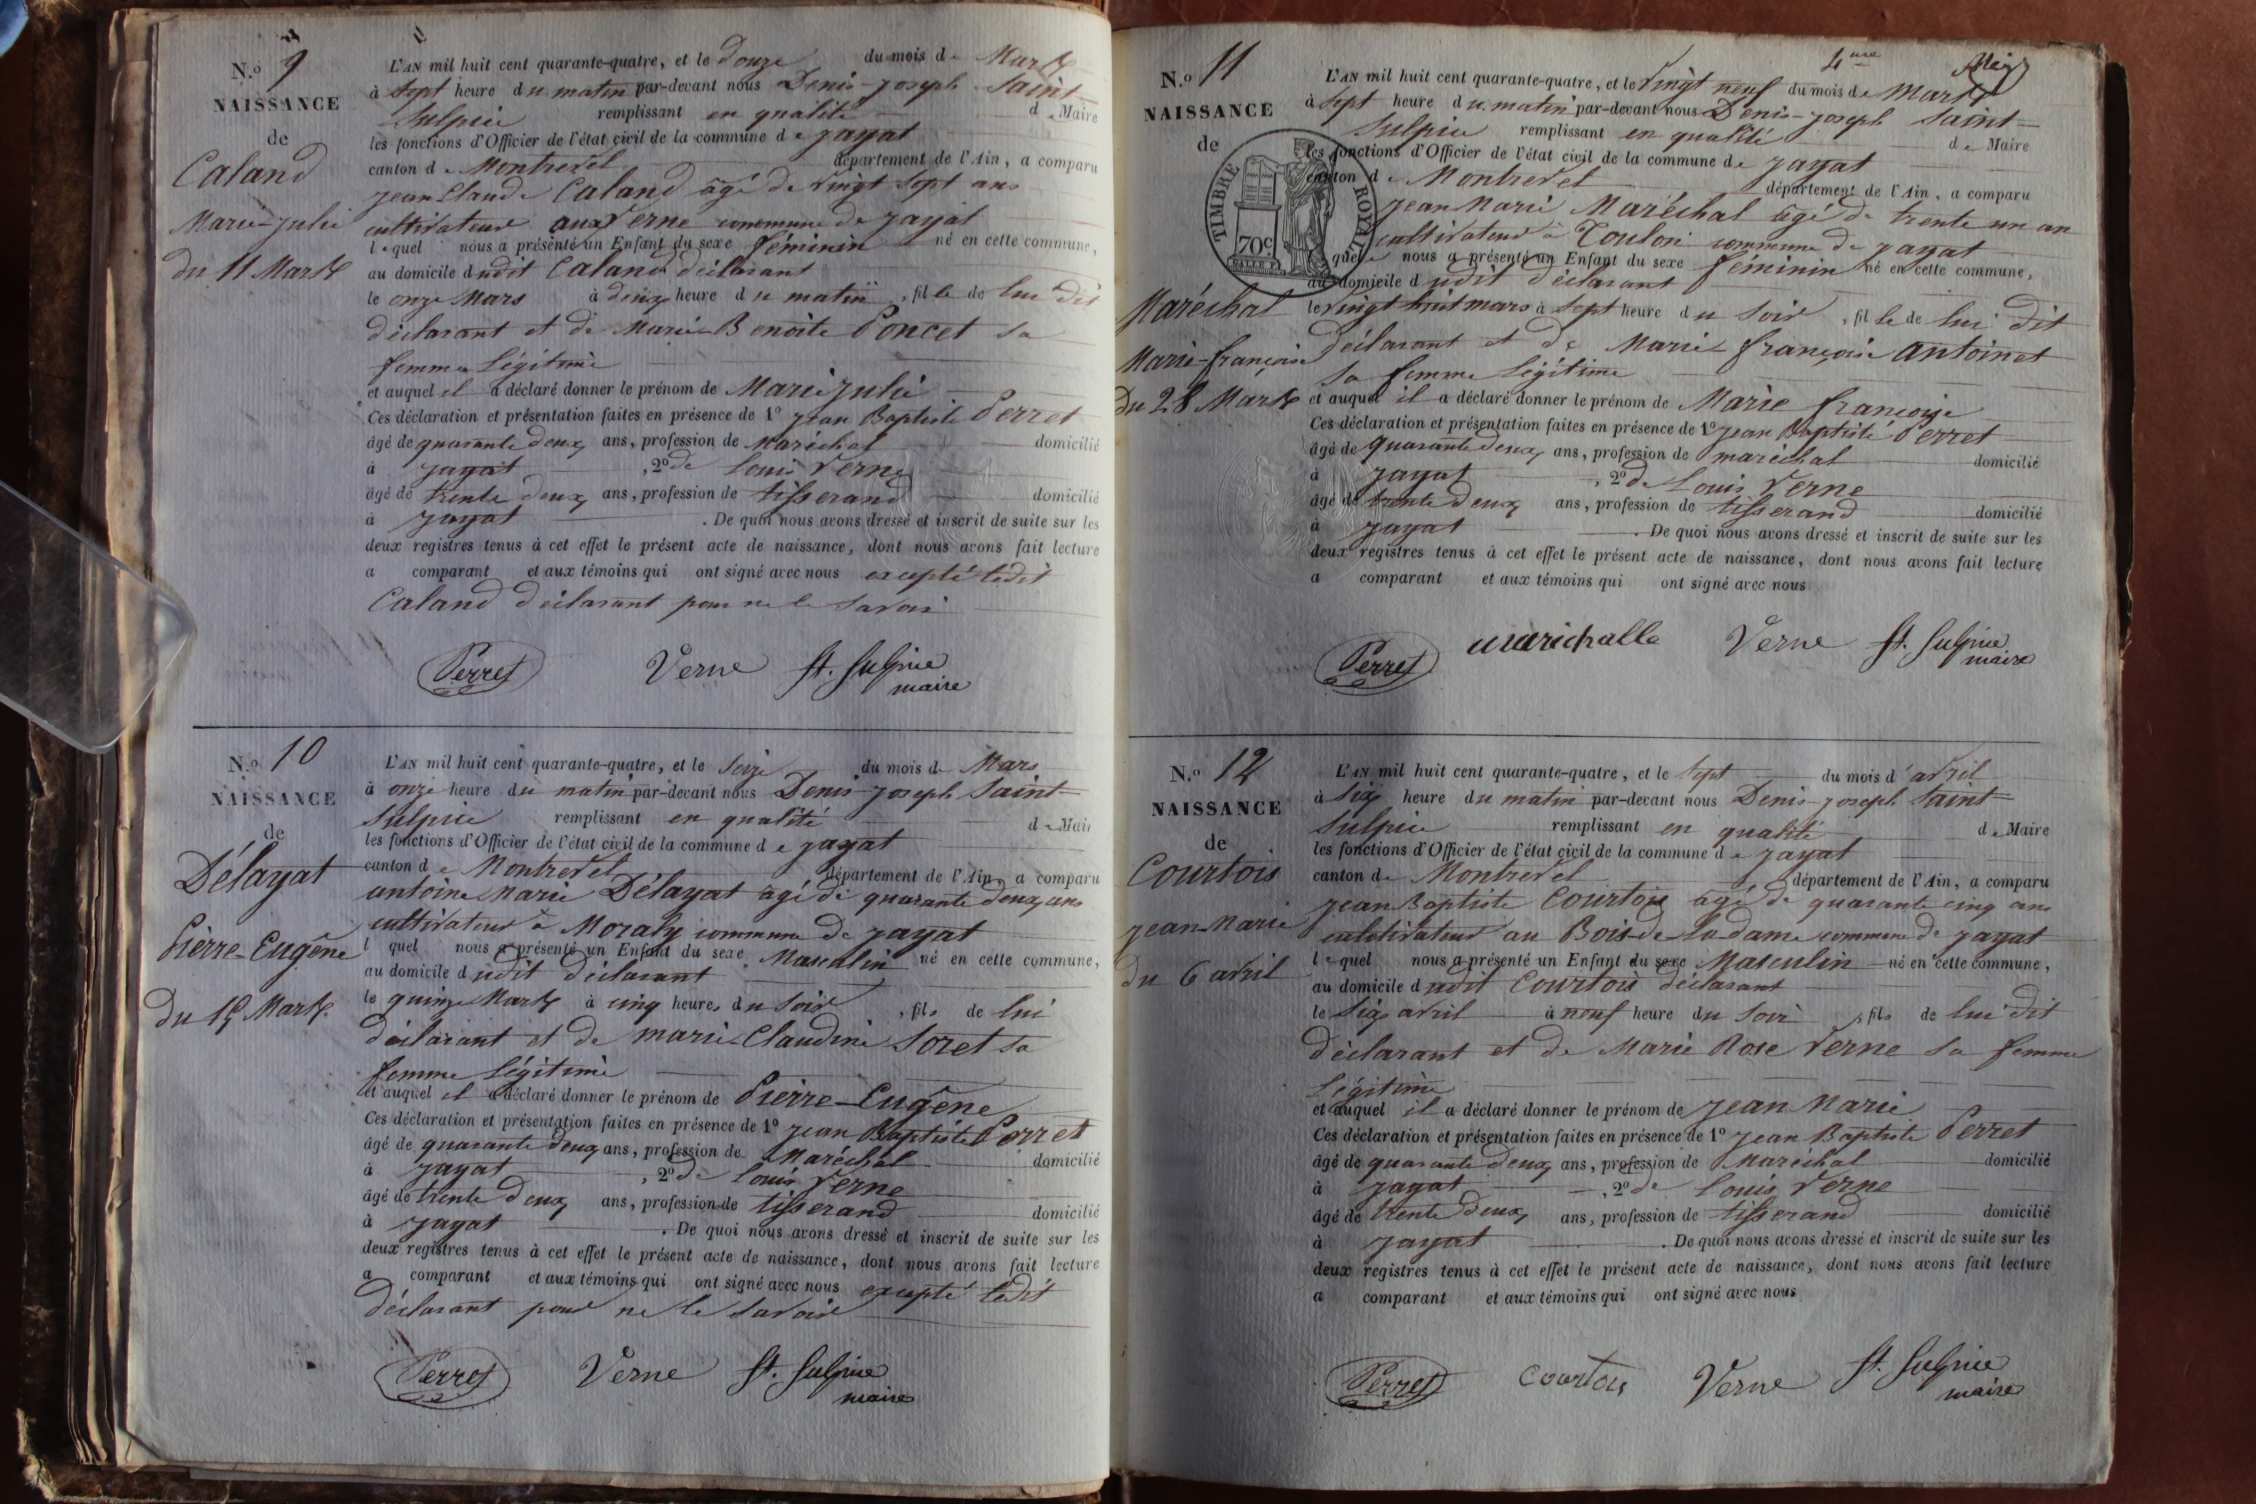 N.o 9
NAISSANCE
de
Caland
Marie-Julie
du 11 Mars
L'AN mil huit cent quarante-quatre, et le Douze du mois de Mars
à Sept heure du matin par-devant nous Denis-Joseph Saint-
Sulpice remplissant en qualité de Maire
les fonctions d'Officier de l'état civil de la commune de Jayat
canton de Montrevel département de l'Ain, a comparu
Jean Claude Caland âgé de vingt sept ans
cultivateur aux Verne commune de Jayat
lequel nous a présenté un Enfant du sexe féminin né en cette commune,
au domicile dudit Caland déclarant
le onze Mars à deux heure du matin, fille de lui dit
déclarant et de Marie-Benoîte Poncet sa
femme légitime
et auquel il a déclaré donner le prénom de Marie Julie
Ces déclaration et présentation faites en présence de 1o Jean Baptiste Perret
âgé de quarante deux ans, profession de Maréchal domicilié
à Jayat, 2o de Louis Verne
âgé de trente deux ans, profession de tisserand domicilié
à Jayat. De quoi nous avons dressé et inscrit de suite sur les
deux registres tenus à cet effet le présent acte de naissance, dont nous avons fait lecture
a comparant et aux témoins qui ont signé avec nous excepté ledit
Caland déclarant pour ne le savoir
Perret Verne St. Sulpice
maire
N.o 10
NAISSANCE
de
Délayat
Pierre-Eugêne
du 15 Mars
L'AN mil huit cent quarante-quatre, et le Seize du mois de Mars
à onze heure du matin par-devant nous Denis-Joseph Saint-
Sulpice remplissant en qualité de Mair
les fonctions d'Officier de l'état civil de la commune de Jayat
canton de Montrevel département de l'Ain, a comparu
antoine Marie Délayat âgé de quarante deux ans
cultivateur à Moraly commune de Jayat
l quel nous a présenté un Enfant du sexe Masculin né en cette commune,
au domicile dudit déclarant
le quinze Mars à cinq heures du soir, fils de lui
déclarant et de marie-Claudine Soret sa
femme légitime
et auquel il a déclaré donner le prénom de Pierre-Eugêne
Ces déclaration et présentation faites en présence de 1o Jean Baptiste Perret
âgé de quarante deux ans, profession de Maréchal domicilié
à Jayat, 2o de Louis Verne
âgé de trente deux ans, profession de tisserand domicilié
à Jayat. De quoi nous avons dressé et inscrit de suite sur les
deux registres tenus à cet effet le présent acte de naissance, dont nous avons fait lecture
a comparant et aux témoins qui ont signé avec nous excepté ledit
déclarant pour ne le savoir
Perret Verne St. Sulpice
maire
4me
N.o 11
NAISSANCE
de
Maréchal
Marie-françoise
Du 28 Mars
TIMBRE ROYAL
70c
L'AN mil huit cent quarante-quatre, et le Vingt neuf du mois de Mars
à Sept heure du matin par-devant nous Denis-Joseph Saint-
Sulpice remplissant en qualité de Maire
les fonctions d'Officier de l'état civil de la commune de Jayat
canton de Montrevel département de l'Ain, a comparu
Jean Marie Maréchal âgé de trente un an
cultivateur à Toulon commune de Jayat
quel nous a présenté un Enfant du sexe féminin né en cette commune,
au domicile dudit déclarant
le Vingt huit mars à Sept heure du soir, fille de lui dit
déclarant et de Marie-françoise antoinet
sa femme légitime
et auquel il a déclaré donner le prénom de Marie françoise
Ces déclaration et présentation faites en présence de 1o Jean Baptiste Perret
âgé de quarante deux ans, profession de maréchal domicilié
à Jayat, 2o de Louis Verne
âgé de trente deux ans, profession de tisserand domicilié
à Jayat. De quoi nous avons dressé et inscrit de suite sur les
deux registres tenus à cet effet le présent acte de naissance, dont nous avons fait lecture
a comparant et aux témoins qui ont signé avec nous
Perret marichalle Verne St. Sulpice
maire
N.o 12
NAISSANCE
de
Courtois
Jean-Marie
du 6 avril
L'AN mil huit cent quarante-quatre, et le Sept du mois d'avril
à Six heure du matin par-devant nous Denis-Joseph Saint-
Sulpice remplissant en qualité de Maire
les fonctions d'Officier de l'état civil de la commune de Jayat
canton de Montrevel département de l'Ain, a comparu
Jean Baptiste Courtois âgé de quarante cinq ans
culctivateur au Bois-de la dame commune de Jayat
lequel nous a présenté un Enfant du sexe Masculin né en cette commune,
au domicile dudit Courtois déclarant
le Six avril à neuf heure du soir, fils de lui dit
déclarant et de Marie Rose Verne sa femme
légitime
et auquel il a déclaré donner le prénom de Jean Marie
Ces déclaration et présentation faites en présence de 1o Jean Baptiste Perret
âgé de quarante deux ans, profession de Maréchal domicilié
à Jayat, 2o de Louis Verne
âgé de trente deux ans, profession de tisserand domicilié
à Jayat. De quoi nous avons dressé et inscrit de suite sur les
deux registres tenus à cet effet le présent acte de naissance, dont nous avons fait lecture
a comparant et aux témoins qui ont signé avec nous
Perret Courtois Verne St. Sulpice
maire